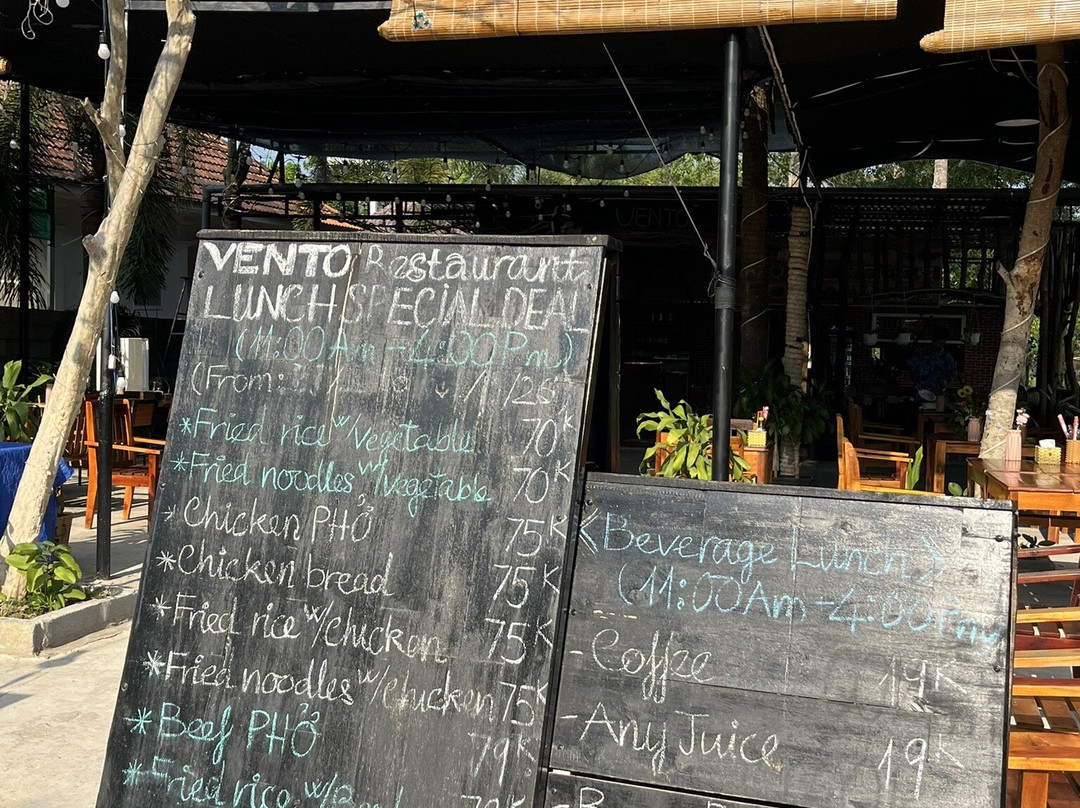 VENTO
VENTO Restaurant
LUNCH SPECIAL DEAL
(11:00 Am - 4:00 Pm)
(From:
*Fried rice w/vegetable 70K
*Fried noodles w/vegetable 70K
*Chicken PHỞ 75K
*Chicken bread 75K
*Fried rice w/chicken 75K
*Fried noodles w/chicken 75K
*Beef PHỞ 79K
*Fried rice w/
<Beverage Lunch>
(11:00 Am - 4:00 Pm)
- Coffee 19K
- Any Juice 19K